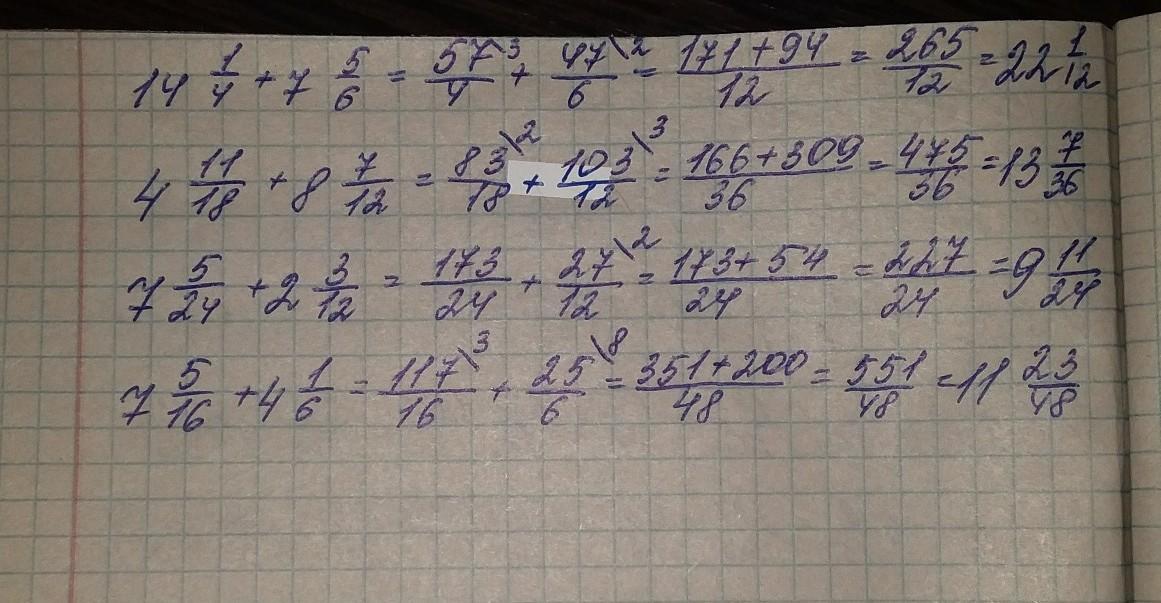 14 1/4 + 7 5/6 = 57\3/4 + 47\2/6 = 171+94/12 = 265/12 = 22 1/12
4 11/18 + 8 7/12 = 83\2/18 + 103\3/12 = 166+309/36 = 475/36 = 13 7/36
7 5/24 + 2 3/12 = 173/24 + 27\2/12 = 173+54/24 = 227/24 = 9 11/24
7 5/16 + 4 1/6 = 117\3/16 + 25\8/6 = 351+200/48 = 551/48 = 11 23/48